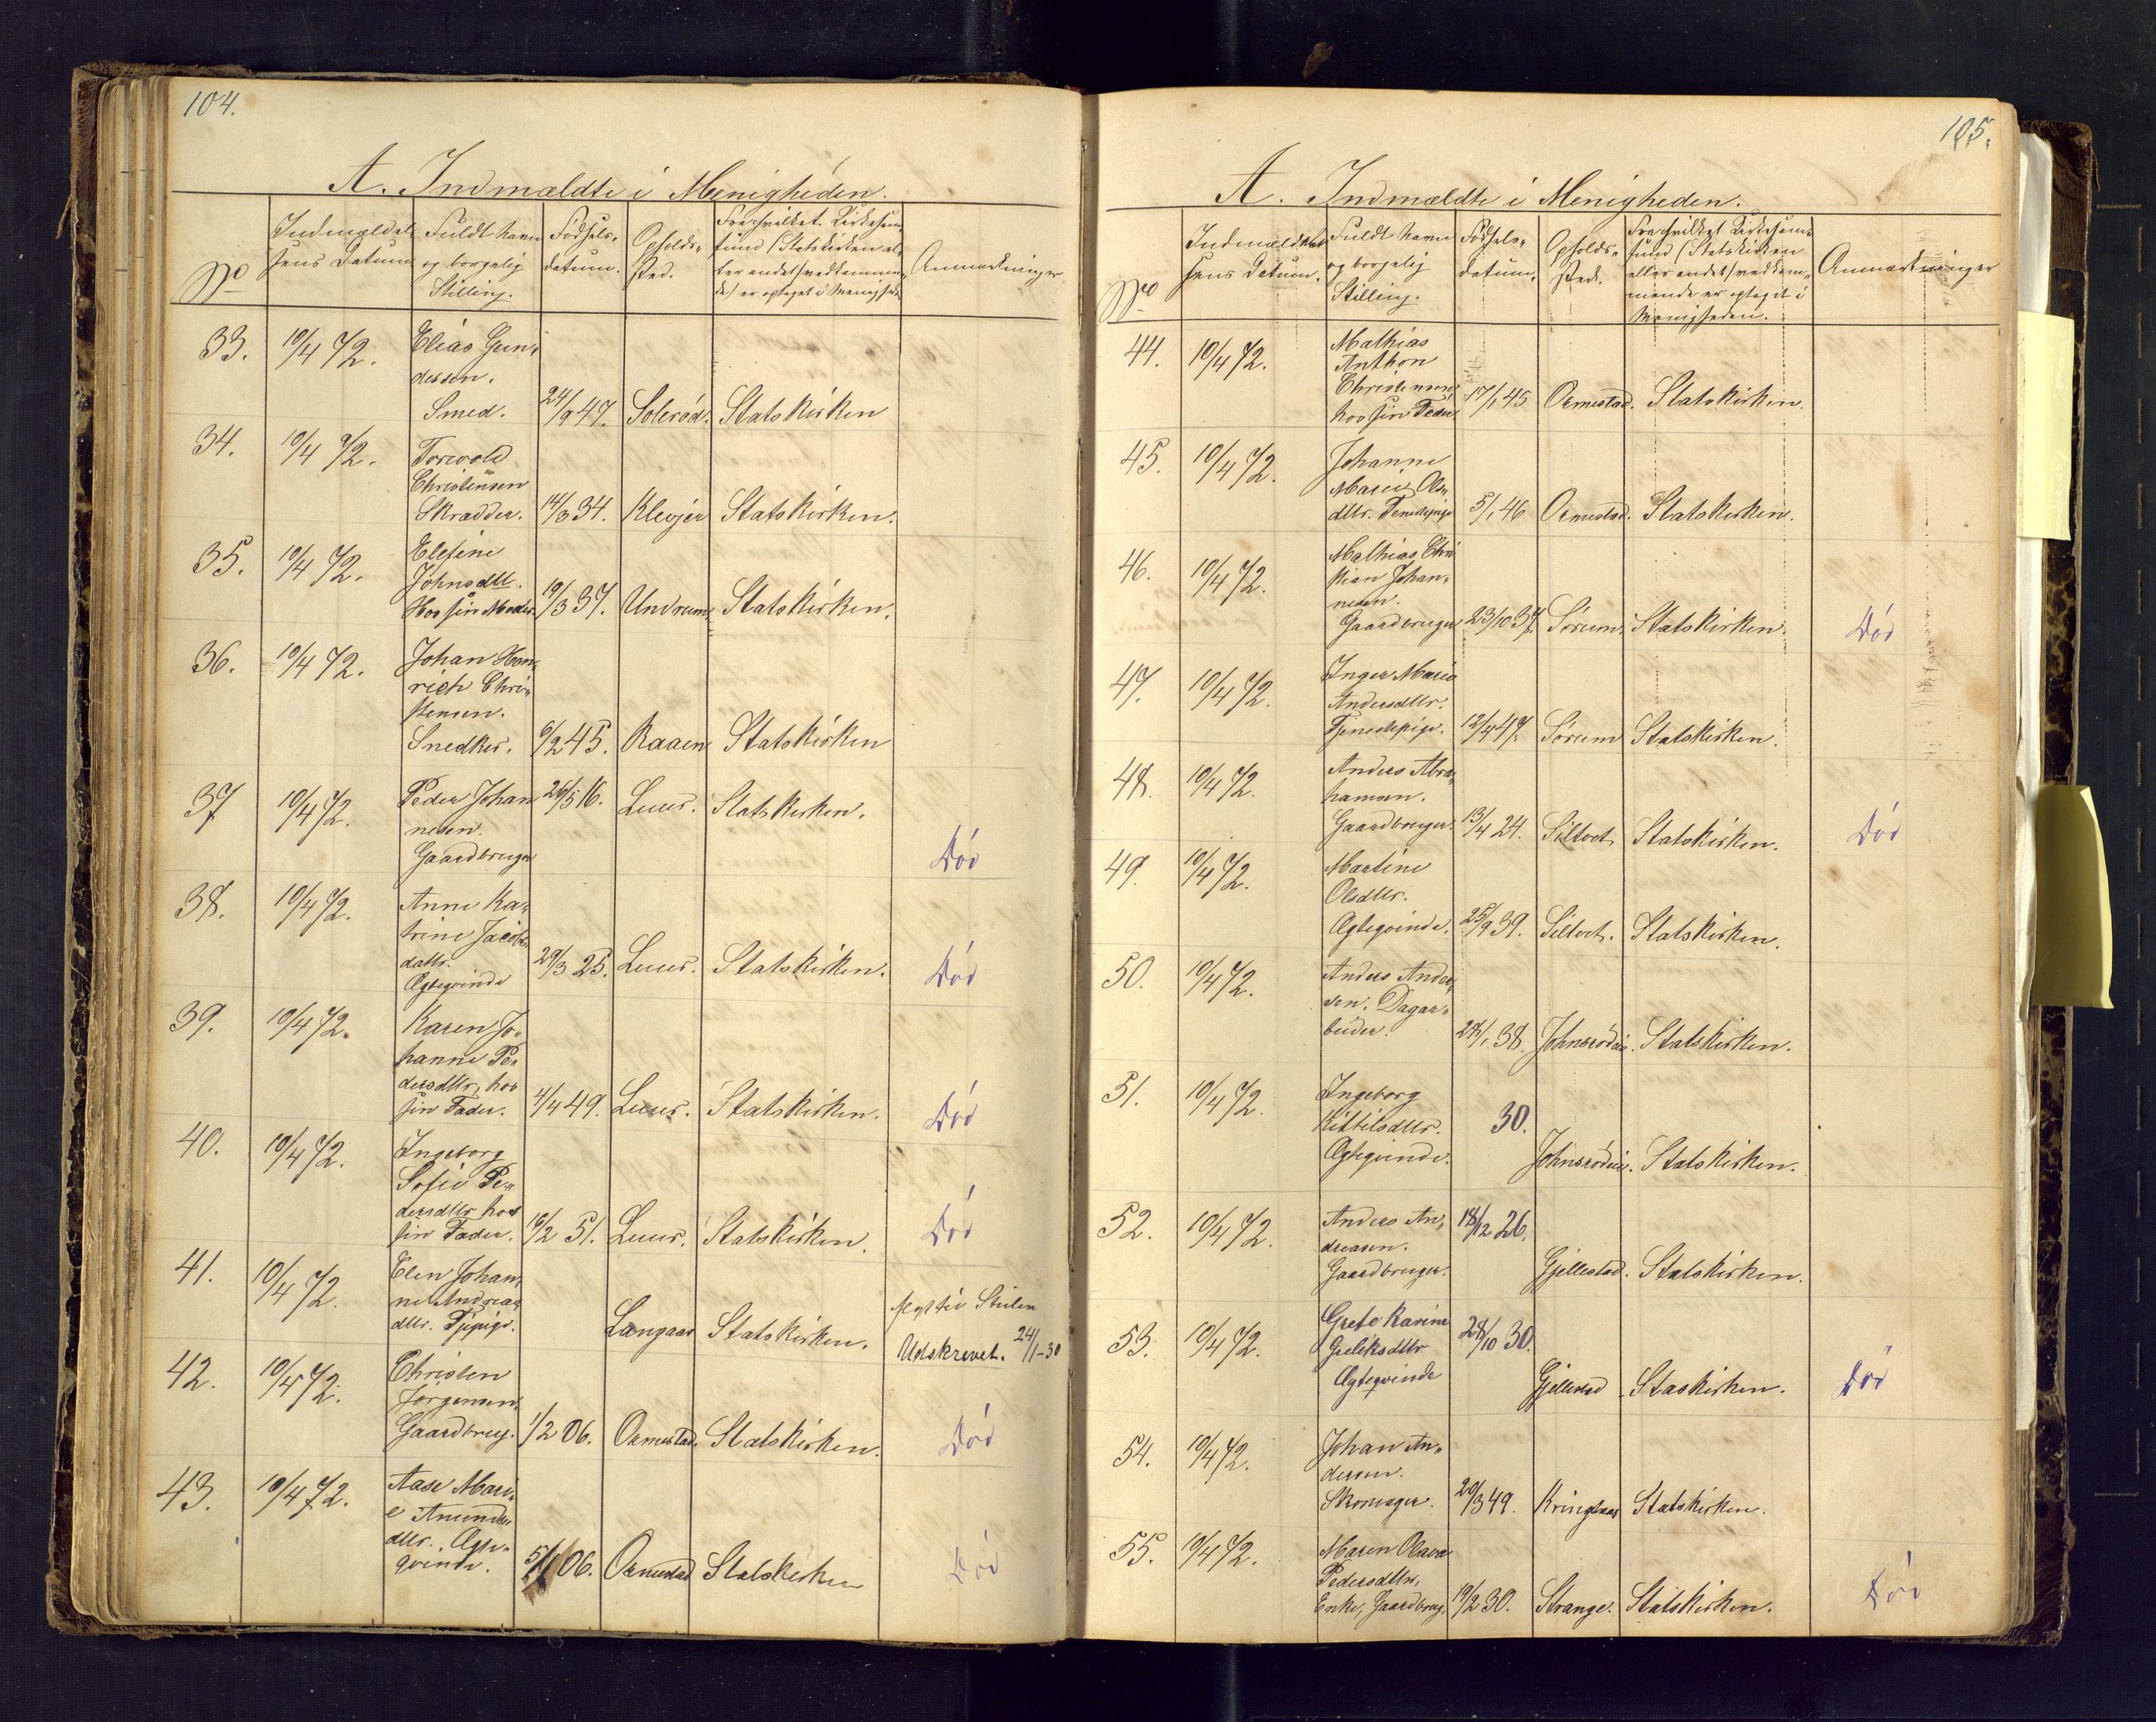 104.
A. Indmældte i Menigheden.
No
Indmældel-
sens Datum
Fuldt Navn
og borgelig
Stilling.
Fødsels-
datum.
Opholds-
sted.
Fra hvilket Kirkesam-
fund (Statskirken el-
ler andet) vedkommen-
de er optaget i Menighed
Anmærkninger
33. 10/4 72. Elias Gun-
dersen.
Smed. 24/9 47. Solerød. Statskirken
34. 10/4 72. Torevald
Christensen
Skrædder. 14/3 34. Klevjer Statskirken.
35. 10/4 72. Elefine
Johnsdtt.
Hos sin Moder. 19/3 37. Undrum. Statskirken.
36. 10/4 72. Johan Hen-
rich Chri-
stensen.
Snedker. 6/2 45. Raaen Statskirken
37 10/4 72. Peder Johan- 26/5 16. Luur. Statskirken.
nesen.
Gaardbruger Død
38. 10/4 72. Anne Ka-
trine Jacobs-
dattr.
Ægteqvinde 29/3 25. Luur. Statskirken. Død
39. 10/4 72. Karen Jo-
hanne Pe-
dersdttr, hos
sin Fader. 4/4 49. Luur. Statskirken. Død
40. 10/4 72. Ingeborg
Sofie Pe-
dersdttr hos
sin Fader. 16/2 51. Luur. Statskirken. Død
41. 10/4 72. Elen Johan-
ne Andreas
dttr. Tjpige. Langaar Statskirken. Stulen
Udskrevet. 24/1-30
42. 10/4 72. Christen
Jørgensen.
Gaardbrug. 1/2 06. Ormestad. Statskirken. Død
43. 10/4 72. Aase Mari-
e Amunds-
dttr. Ægte-
qvinde. 06. Ormestad Statskirken Død
105.
A. Indmældte i Menigheden.
No
Indmældel-
sens Datum.
Fuldt Navn
og borgelig
Stilling.
Fødsels-
datum.
Opholds-
sted.
Fra hvilket Kirkesam-
fund (Statskirken
eller andet) vedkom-
mende er optaget i
Menigheden.
Anmærkninger
44. 10/4 72. Mathias
Anthon
Christensen
hos sin Fader 17/1 45 Ormestad. Statskirken.
45. 10/4 72. Johanne
Marie Ols-
dttr. Tenestpige 5/1 46 Ormestad. Statskirken.
46. 10/4 72. Mathias Chri
stian Johan-
nesen.
Gaardbruger 23/10 37. Sørum. Statskirken. Død
47. 10/4 72. Inger Marie
Andersdttr.
Tjenestepige. 12/4 47. Sørum Statskirken.
48. 10/4 72. Anders Abra-
hamsen.
Gaardbruger. 13/4 24. Siltvet Statskirken. Død
49. 10/4 72. Martine
Olsdttr.
Ægteqvinde. 25/9 39. Siltvet. Statskirken.
50. 10/4 72. Anders Ander-
sen. Dagar-
beider. 24/1 38. Johnsrødeie. Statskirken.
51. 10/4 72. Ingeborg
Kittilsdttr. 30.
Ægteqvinde. Johnsrødeie. Statskirken.
52. 10/4 72. Anders An- 18/12 26.
dreasen.
Gaardbruger. Gjellestad. Statskirken.
53. 10/4 72. Grete Karine 28/10 30.
Guliksdttr
Ægteqvinde Gjellestad Staskirken. Død
54. 10/4 72. Johan An-
dersen.
Skomager. 20/3 49. Kringlaas Statskirken.
55. 10/4 72. Maren Olava
Pedersdttr,
Enke, Gaardbrug. 19/2 30. Strange. Statskirken. Død